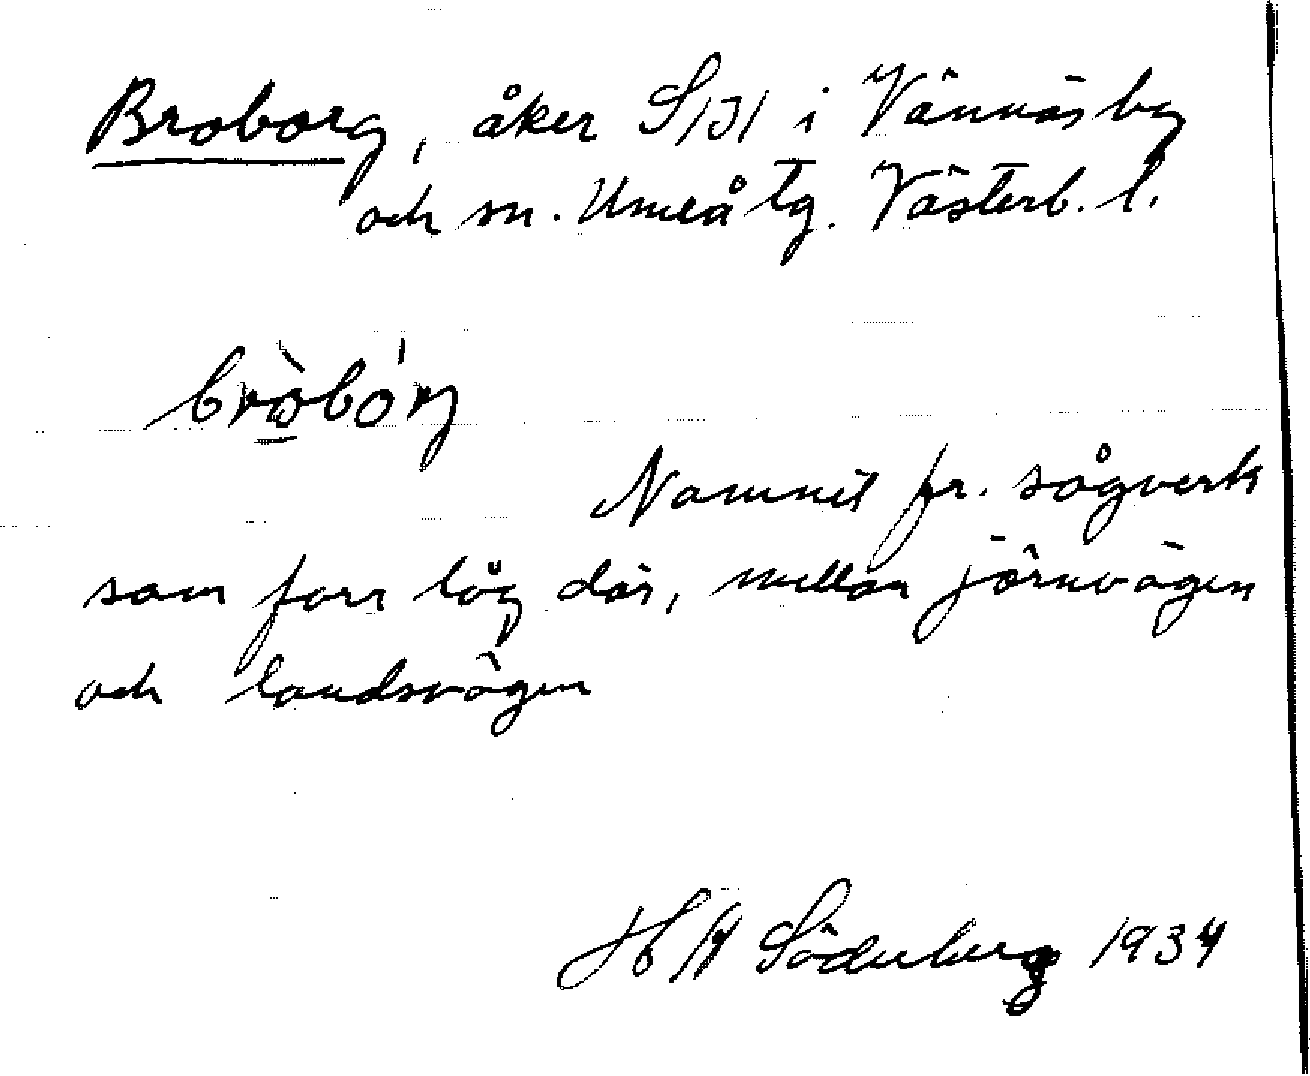 Broborg, åker S131 i Vännäsby
och sn. Umeå tg. Västerb. l.
bròbórg
Namnet fr. sågverk
som förr låg där, mellan järnvägen
och landsvägen
H A Söderberg 1934